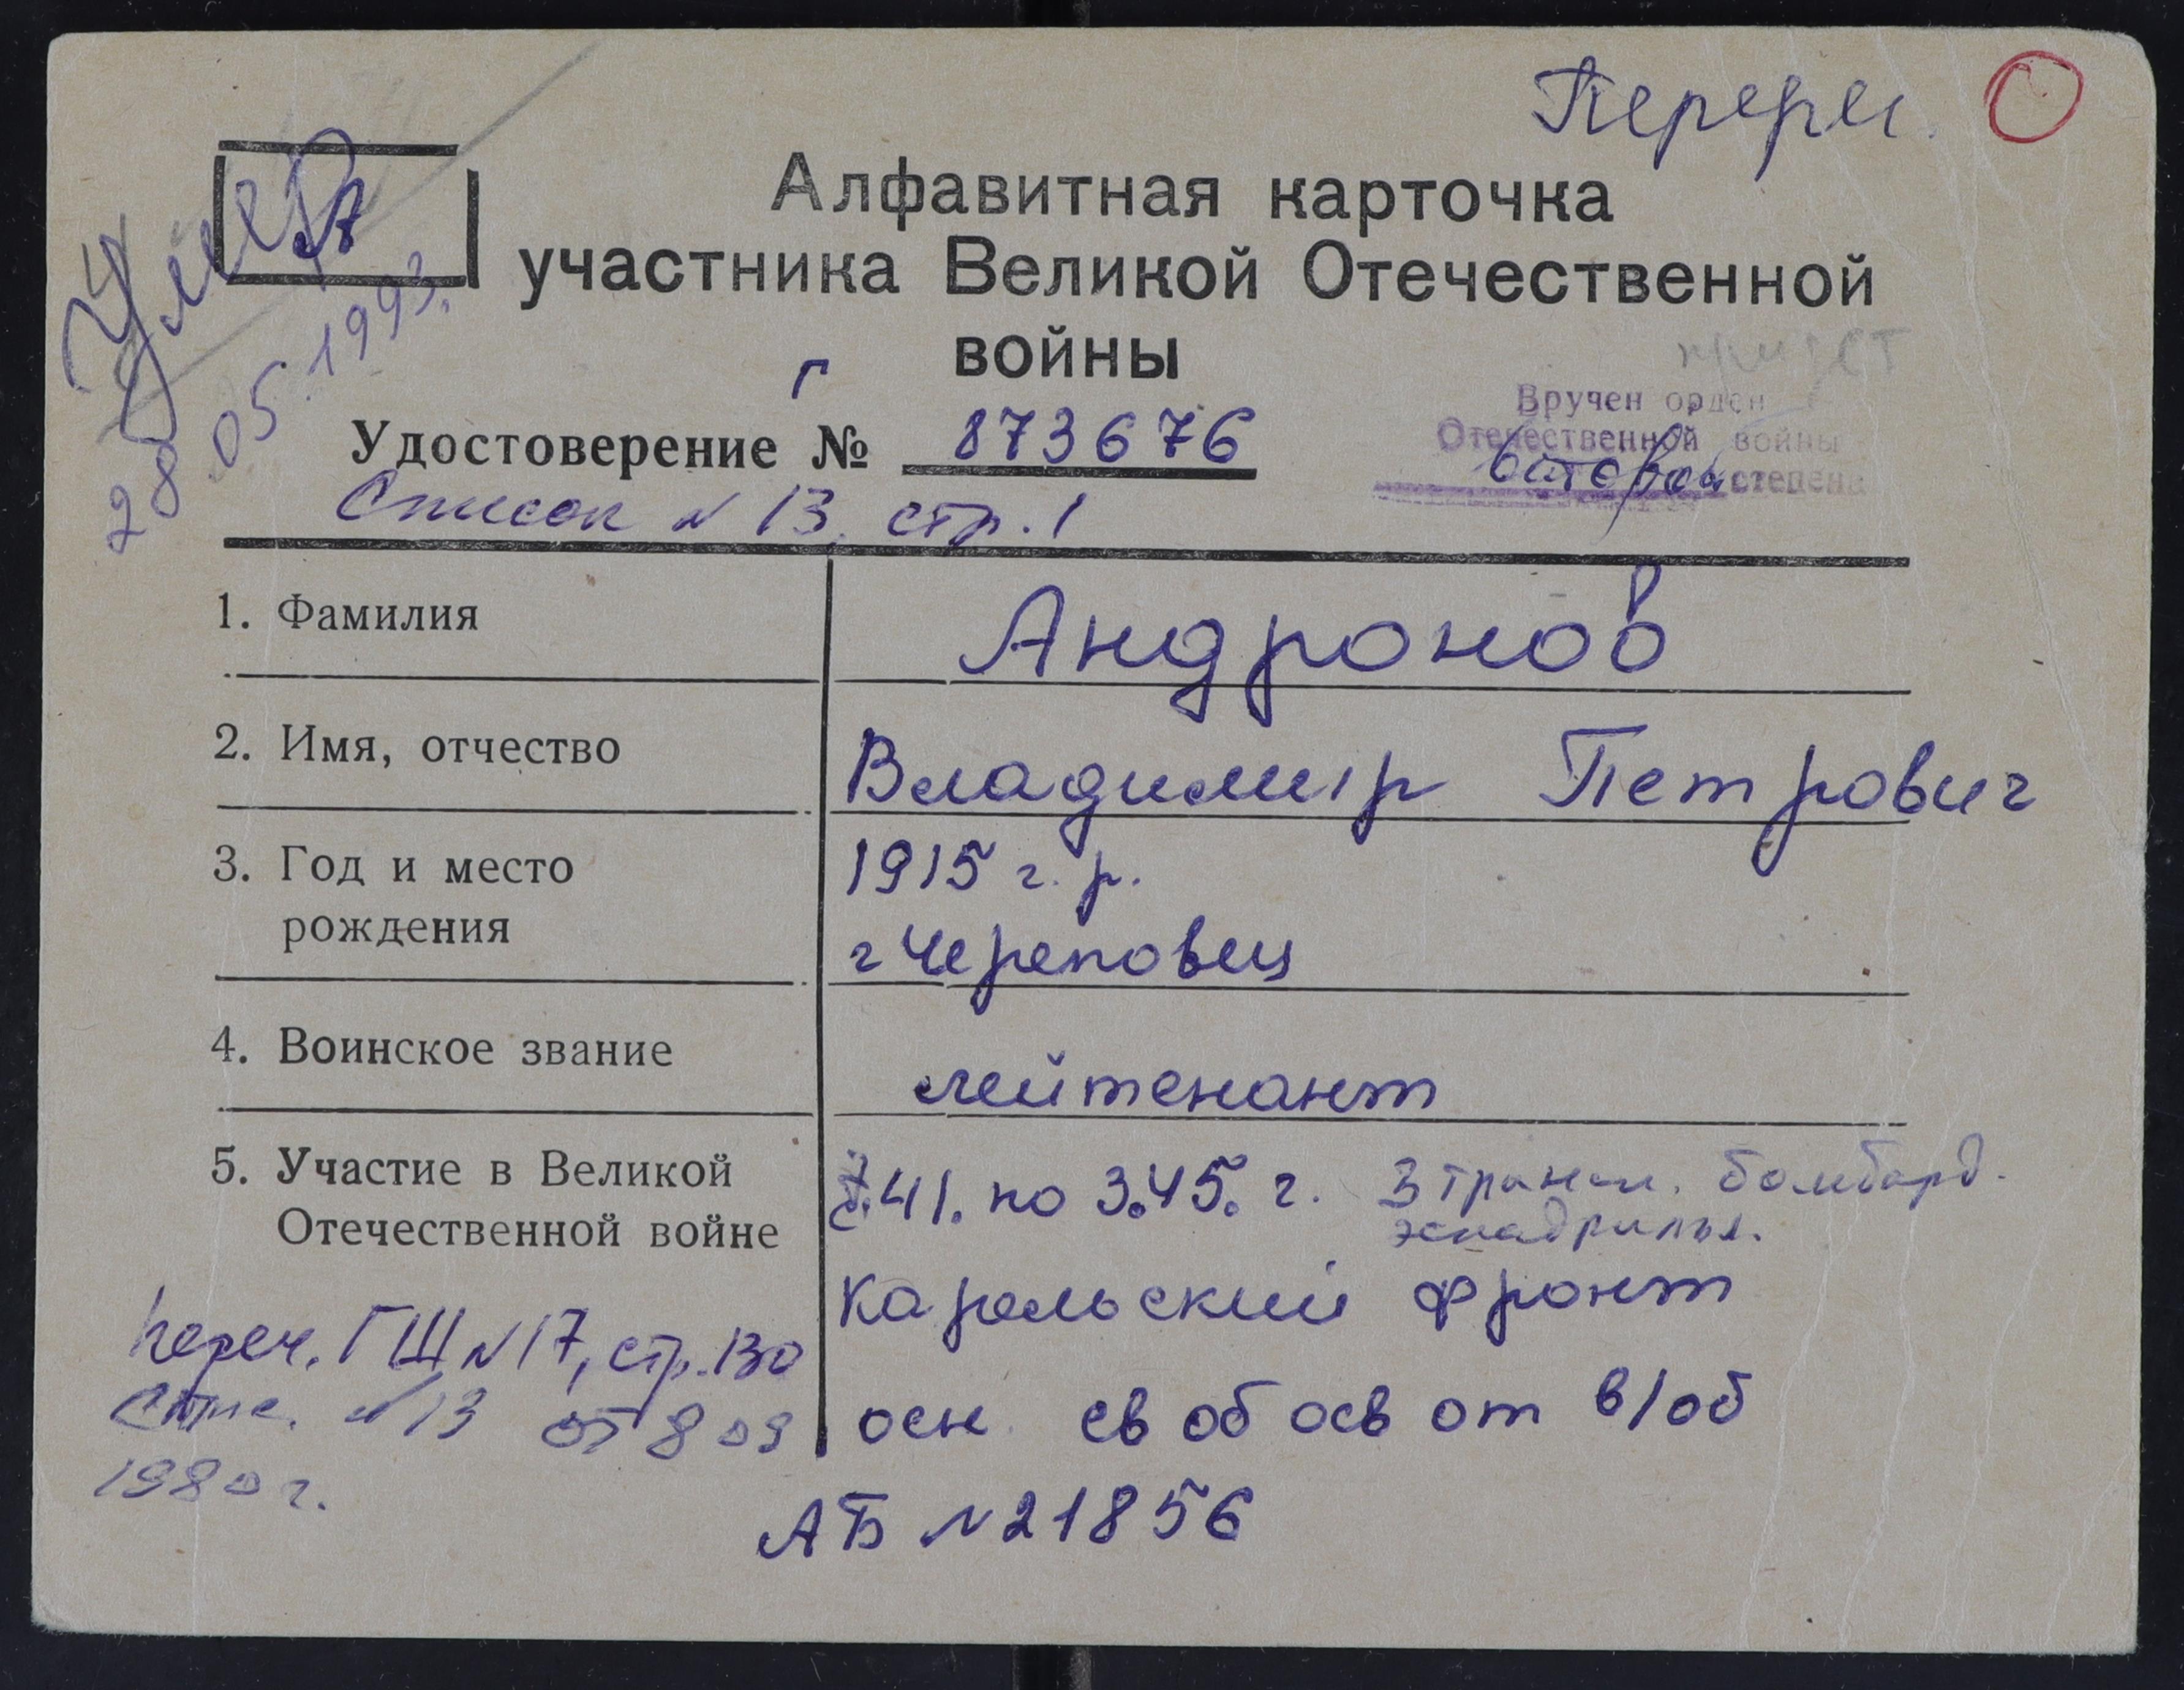 Перерег.
Умер
28.05.1993.
Алфавитная карточка
участника Великой Отечественной
войны
Г
Удостоверение № 873676
Список N 13, стр. 1
Вручен орден
Отечественной войны
второй степени
1. Фамилия Андронов
2. Имя, отчество Владимир Петрович
3. Год и место 1915 г. р.
рождения г Череповец
4. Воинское звание лейтенант
5. Участие в Великой 41. по 3.45. г. 3 трансп. бомбард.
Отечественной войне эскадрилья.
Карельский фронт
переч. ГШ N 17, стр. 130
осн. св об осв от в/об
спис. N 13 от 8 09
1980 г.
АБ N 21856